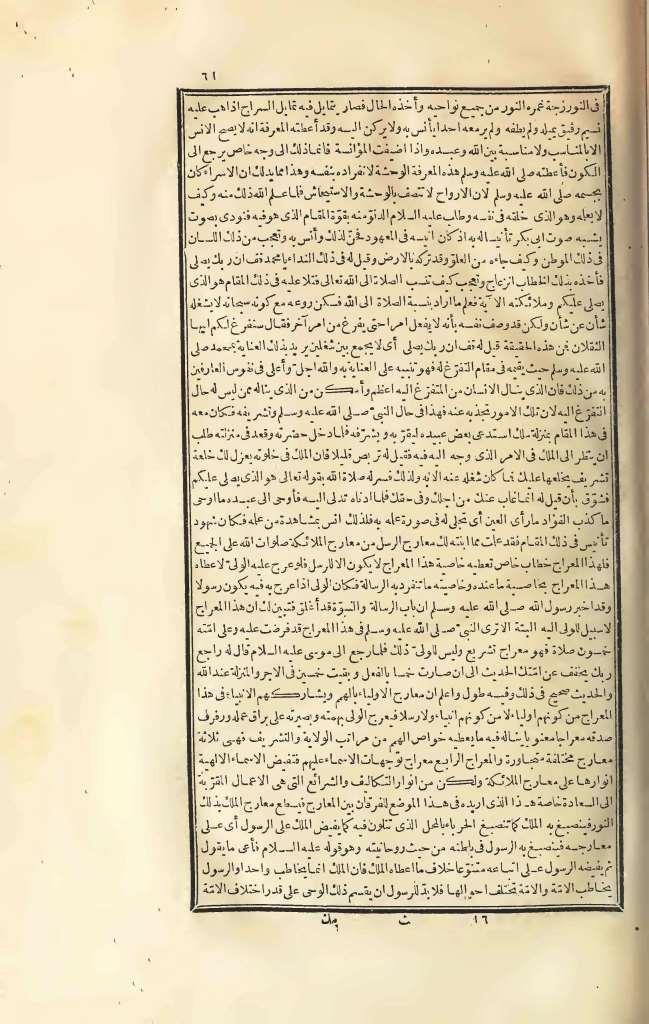 ٦١
فى النور زجة غمره النور من جميع نواحيه وأخذه الحال فصار يتمايل فيه تمايل السراج اذا هب عليه
نسيم رقيق يميله ولم يطفه ولم ير معه احدا يأنس به ولا يركن اليه وقد أعطته المعرفة انه لا يصح الانس
الا بالمناسب ولا مناسبة بين الله وعبده واذا اضيفت المؤانسة فانما ذلك الى وجه خاص يرجع الى
الكون فأعطته صلى الله عليه وسلم هذه المعرفة الوحشة لانفراده بنفسه وهذا مما يدلك ان الاسراء كان
بجسمه صلى الله عليه وسلم لان الارواح لا تتصف بالوحشة والاستيحاش فلما علم الله ذلك منه وكيف
لا يعلمه وهو الذى خلقه فى نفسه وطلب عليه السلام الدنو منه بقوة المقام الذى هو فيه فنودى بصوت
يشبه صوت ابى بكر تأنيسا له به اذ كان انيسه فى المعهود فحن لذلك وأنس به وتعجب من ذلك اللسان
فى ذلك الموطن وكيف جاءه من العلو وقد تركه بالارض وقيل له فى ذلك النداء يا محمد قف ان ربك يصلى
فأخذه بذلك الخطاب انزعاج وتعجب كيف تنسب الصلاة الى الله تعالى فتلا عليه فى ذلك المقام هو الذى
يصلى عليكم وملائكته الآية فعلم ما اراد بنسبة الصلاة الى الله فسكن روعه مع كونه سبحانه لا يشغله
شأن عن شأن ولكن قد وصف نفسه بأنه لا يفعل امرا حتى يفرغ من امر آخر فقال سنفرغ لكم ايها
الثقلان فمن هذه الحقيقة قيل له قف ان ربك يصلى أى لا يجمع بين شغلين يريد بذلك العناية بمحمد صلى
الله عليه وسلم حيث يقيمه فى مقام التفرغ له فهو تنبيه على العناية به والله اجل وأعلى فى نفوس العارفين
به من ذلك فان الذى ينال الانسان من المتفرغ اليه اعظم وأمكن من الذى يناله ممن ليس له حال
التفرغ اليه لان تلك الامور تجذبه عنه فهذا فى حال النبى صلى الله عليه وسلم وتشريفه فكان معه
فى هذا المقام بمنزلة ملك استدعى بعض عبيده ليقربه ويشرفه فلما دخل حضرته وقعد فى منزلته طلب
ان ينظر الى الملك فى الامر الذى وجه اليه فيه فقيل له تربص قليلا فان الملك فى خلوته يعزل لك خلعة
تشريف يخلعها عليك فما كان شغله عنه الا به ولذلك فسر له صلاة الله بقوله تعالى هو الذى يصلى عليكم
فشوق بأن قيل له انما غاب عنك من اجلك وفى حقك فلما ادناه تدلى اليه فأوحى الى عبده ما اوحى
ما كذب الفؤاد ما رأى العين أى تجلى له فى صورة علمه به فلذلك انس بمشاهدة من علمه فكان شهود
تأنيس فى ذلك المقام فقد علمت مما ابنته لك معارج الرسل من معارج الملائكة صلوات الله على الجميع
فلهذا المعراج خطاب خاص تعطيه خاصية هذا المعراج لا يكون الا للرسل فلو عرج عليه الولى لاعطاه
هذا المعراج بخاصية ما عنده وخاصيته ما تنفرد به الرسالة فكان الولى اذا عرج به فيه يكون رسولا
وقد اخبر رسول الله صلى الله عليه وسلم ان باب الرسالة والنبوة قد أغلق فتبين لك ان هذا المعراج
لا سبيل للولى اليه البتة الا ترى النبى صلى الله عليه وسلم فى هذا المعراج قد فرضت عليه وعلى امته
خمسون صلاة فهو معراج تشريع وليس للولى ذلك فلما رجع الى موسى عليه السلام قال له راجع
ربك يخفف عن امتك الحديث الى ان صارت خمسا بالفعل وبقيت خمسين فى الاجر والمنزلة عند الله
والحديث صحيح فى ذلك وفيه طول واعلم ان معارج الاولياء بالهمم ويشاركهم الانبياء فى هذا
المعراج من كونهم اولياء لا من كونهم انبياء ولا رسلا فيعرج الولى بهمته وبصيرته على براق عمله ورفرف
صدقه معراجا معنويا يناله فيه ما يعطيه خواص الهمم من مراتب الولاية والتشريف فهى ثلاثة
معارج مختلفة متجاورة والمعراج الرابع معراج توجهات الاسماء عليهم فتفيض الاسماء الالهية
انوارها على معارج الملائكة ولكن من انوار التكاليف والشرائع التى هى الاعمال المقربة
الى السعادة خاصة هذا الذى اريده فى هذا الموضع للفرقان بين المعارج فتسطع معارج الملك بذلك
النور فينصبغ به الملك كما تنصبغ الحرباء بالمحل الذى تتلون فيه كما يفيض الملك على الرسول أى على
معارجه فينصبغ به الرسول فى باطنه من حيث روحانيته وهو قوله عليه السلام فأعى ما يقول
ثم يفيضه الرسول على اتباعه متنوعا خلاف ما اعطاه الملك فان الملك انما يخاطب واحدا والرسول
يخاطب الامة والامة تختلف احوالها فلا بد للرسول ان يقسم ذلك الوحى على قدر اختلاف الامة
١٦ ث مك